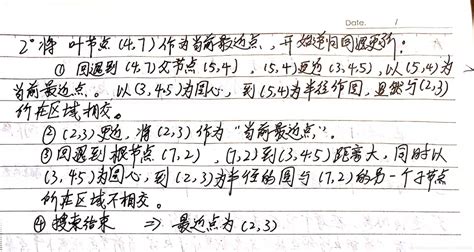 Date. /
2° 将 叶节点 (4,7) 作为当前最近点, 开始递归回溯更新:
① 回溯到 (4,7) 父节点 (5,4), (5,4)更近 (3,4.5), 以 (5,4)为
当前最近点。以(3,4.5)为圆心, 到(5,4)为半径作圆, 显然与(2,3)
所在区域相交。
② (2,3)更近, 将 (2,3) 作为 "当前最近点"。
③ 回溯到根节点 (7,2), (7,2)到(3,4.5)距离大, 同时以
(3,4.5)为圆心, 到 (2,3)为半径的圆与 (7,2)的另一个子节点
所在区域不相交。
④ 搜索结束 ⇒ 最近点为 (2,3)